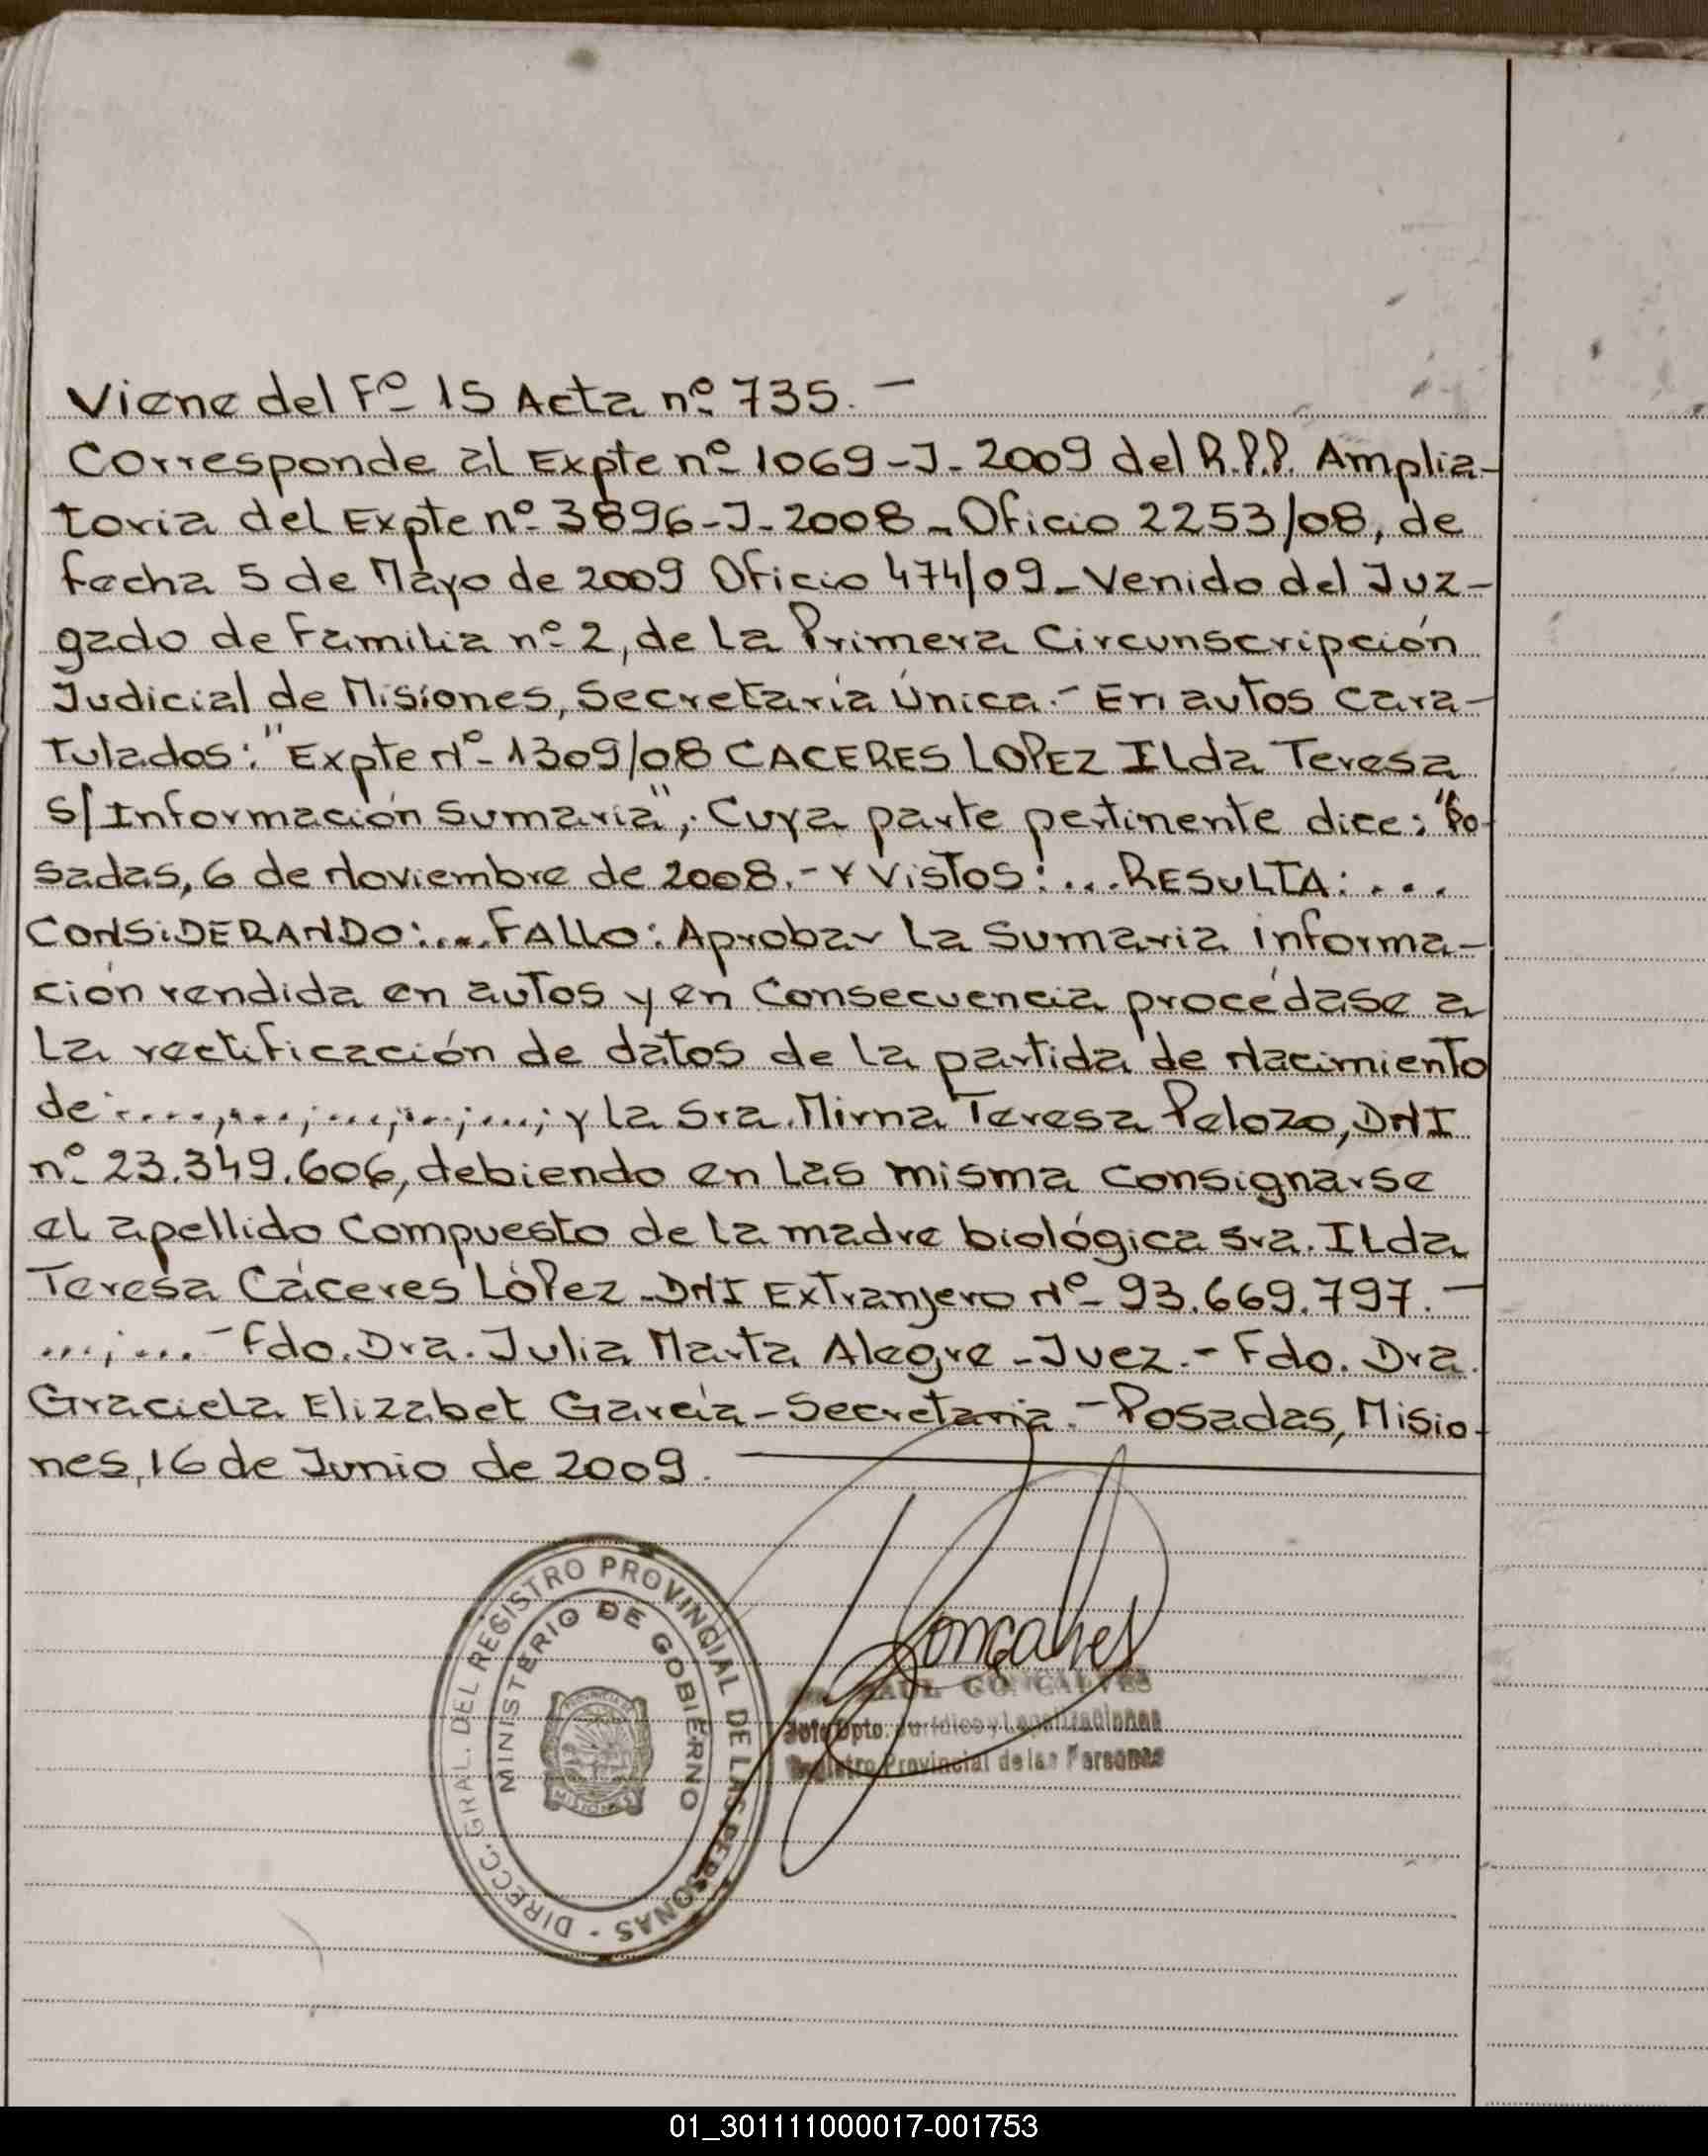 Viene del Fº 15 Acta nº 735.-
Corresponde al Expte nº 1069-J-2009 del R.P.P. Amplia-
toria del Expte nº 3896-J-2008-Oficio 2253/08, de
fecha 5 de Mayo de 2009 Oficio 474/09-Venido del Juz-
gado de Familia nº 2, de la Primera Circunscripción
Judicial de Misiones, Secretaría Única.- En autos cara-
tulados: "Expte Nº 1309/08 CACERES LOPEZ Ilda Teresa
s/Información Sumaria", Cuya parte pertinente dice: "Po-
sadas, 6 de Noviembre de 2008.- Y Vistos:...RESULTA:...
CONSIDERANDO:...FALLO: Aprobar la Sumaria informa-
ción rendida en autos y en Consecuencia procédase a
la rectificación de datos de la partida de Nacimiento
de:....,....;....,...;...; y la Sra. Mirna Teresa Pelozo, DNI
nº 23.349.606, debiendo en las misma consignarse
el apellido Compuesto de la madre biológica Sra. Ilda
Teresa Cáceres López-DNI Extranjero Nº 93.669.797.-
...;... -Fdo. Dra. Julia Marta Alegre-Juez.- Fdo. Dra.
Graciela Elizabet García-Secretaria.-Posadas, Misio-
nes, 16 de Junio de 2009.
DIRECC. GRAL. DEL REGISTRO PROVINCIAL DE LAS PERSONAS -
MINISTERIO DE GOBIERNO
PROVINCIA DE
MISIONES
Gonçalves
RAUL GONCALVES
Jefe Dpto. Jurídico y Legalizaciones
Registro Provincial de las Personas
01_301111000017-001753